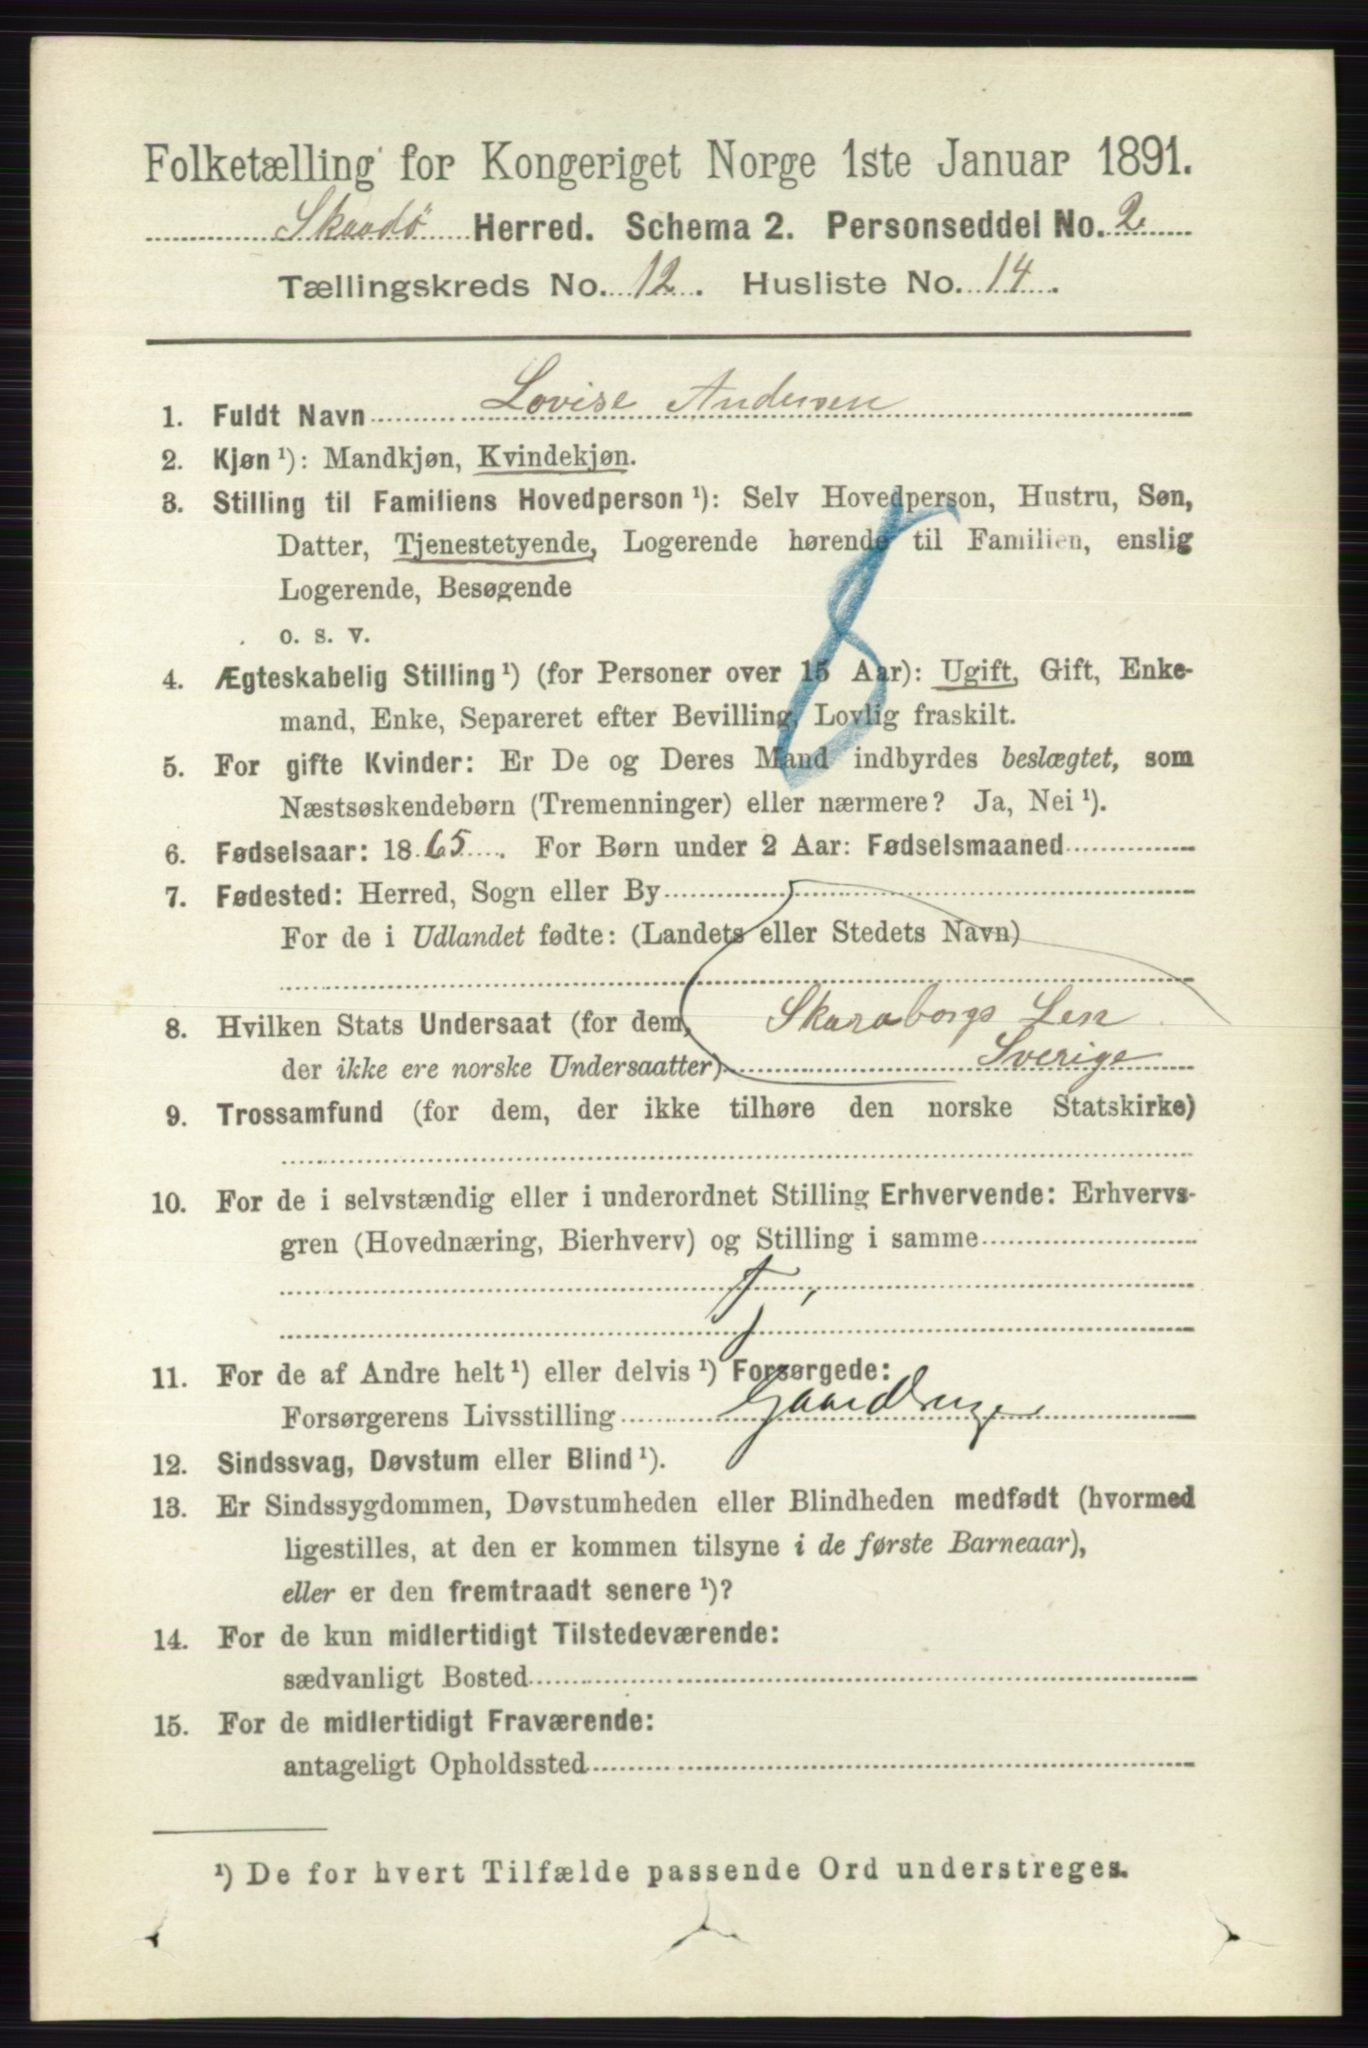 Folketælling for Kongeriget Norge 1ste Januar 1891.
Skaadö Herred. Schema 2. Personseddel No. 2
Tællingskreds No. 12. Husliste No. 14.
1. Fuldt Navn Lovise Andersen
2. Kjøn ¹): Mandkjøn, Kvindekjøn.
3. Stilling til Familiens Hovedperson ¹): Selv Hovedperson, Hustru, Søn,
Datter, Tjenestetyende, Logerende hørende til Familien, enslig
Logerende, Besøgende
o. s. v.
8
4. Ægteskabelig Stilling ¹) (for Personer over 15 Aar): Ugift, Gift, Enke-
mand, Enke, Separeret efter Bevilling, Lovlig fraskilt.
5. For gifte Kvinder: Er De og Deres Mand indbyrdes beslægtet, som
Næstsøskendebørn (Tremenninger) eller nærmere? Ja, Nei ¹).
6. Fødselsaar: 1865. For Børn under 2 Aar: Fødselsmaaned
7. Fødested: Herred, Sogn eller By
For de i Udlandet fødte: (Landets eller Stedets Navn)
8. Hvilken Stats Undersaat (for dem, Skaraborgs Len
der ikke ere norske Undersaatter) Sverige
9. Trossamfund (for dem, der ikke tilhøre den norske Statskirke)
10. For de i selvstændig eller i underordnet Stilling Erhvervende: Erhvervs-
gren (Hovednæring, Bierhverv) og Stilling i samme
T,
11. For de af Andre helt ¹) eller delvis ¹) Forsørgede:
Forsørgerens Livsstilling
12. Sindssvag, Døvstum eller Blind ¹).
13. Er Sindssygdommen, Døvstumheden eller Blindheden medfødt (hvormed
ligestilles, at den er kommen tilsyne i de første Barneaar),
eller er den fremtraadt senere ¹)?
14. For de kun midlertidigt Tilstedeværende:
sædvanligt Bosted
15. For de midlertidigt Fraværende:
antageligt Opholdssted
¹) De for hvert Tilfælde passende Ord understreges.